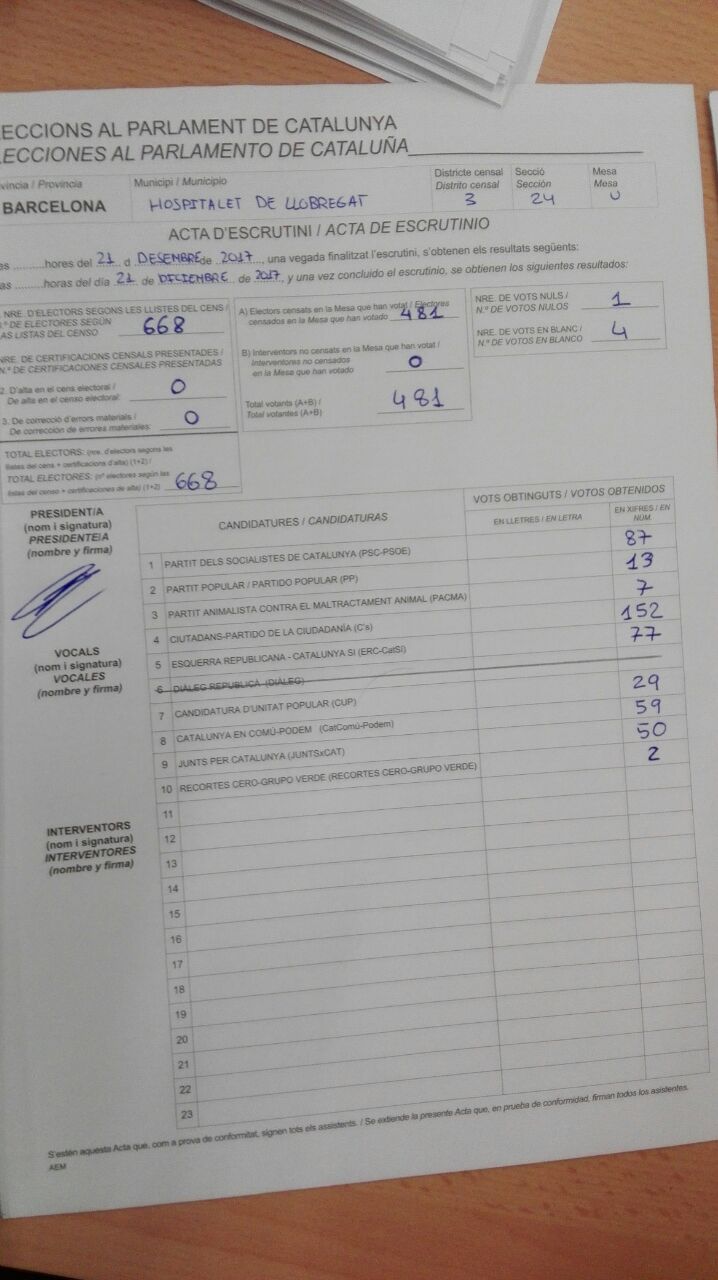 ECCIONS AL PARLAMENT DE CATALUNYA
LECCIONES AL PARLAMENTO DE CATALUÑA
víncia / Provincia
BARCELONA
Municipi / Municipio
HOSPITALET DE LLOBREGAT
Districte censal
Distrito censal
3
Secció
Sección
24
Mesa
Mesa
U
ACTA D'ESCRUTINI / ACTA DE ESCRUTINIO
es ..........hores del 21 d DESEMBRE de 2017, una vegada finalitzat l'escrutini, s'obtenen els resultats següents:
as ..........horas del día 21 de DICIEMBRE de 2017, y una vez concluido el escrutinio, se obtienen los siguientes resultados:
. NRE. D'ELECTORS SEGONS LES LLISTES DEL CENS /
.º DE ELECTORES SEGÚN
AS LISTAS DEL CENSO
668
NRE. DE CERTIFICACIONS CENSALS PRESENTADES /
N.º DE CERTIFICACIONES CENSALES PRESENTADAS
2. D'alta en el cens electoral /
De alta en el censo electoral:
0
3. De correcció d'errors materials /
De corrección de errores materiales:
0
TOTAL ELECTORS: (nre. d'electors segons les
llistes del cens + certificacions d'alta) (1+2) /
TOTAL ELECTORES: (nº electores según las
listas del censo + certificaciones de alta) (1+2)
668
A) Electors censats en la Mesa que han votat / Electores
censados en la Mesa que han votado
481
B) Interventors no censats en la Mesa que han votat /
Interventores no censados
en la Mesa que han votado
0
Total votants (A+B) /
Total votantes (A+B)
481
NRE. DE VOTS NULS /
N.º DE VOTOS NULOS
1
NRE. DE VOTS EN BLANC /
N.º DE VOTOS EN BLANCO
4
PRESIDENT/A
(nom i signatura)
PRESIDENTE/A
(nombre y firma)
VOCALS
(nom i signatura)
VOCALES
(nombre y firma)
INTERVENTORS
(nom i signatura)
INTERVENTORES
(nombre y firma)
CANDIDATURES / CANDIDATURAS
VOTS OBTINGUTS / VOTOS OBTENIDOS
EN LLETRES / EN LETRA
EN XIFRES / EN NÚM.
1 PARTIT DELS SOCIALISTES DE CATALUNYA (PSC-PSOE) 87
2 PARTIT POPULAR / PARTIDO POPULAR (PP) 13
3 PARTIT ANIMALISTA CONTRA EL MALTRACTAMENT ANIMAL (PACMA) 7
4 CIUTADANS-PARTIDO DE LA CIUDADANÍA (C's) 152
5 ESQUERRA REPUBLICANA - CATALUNYA SÍ (ERC-CatSí) 77
6 DIÀLEG REPUBLICÀ (DIÀLEG)
7 CANDIDATURA D'UNITAT POPULAR (CUP) 29
8 CATALUNYA EN COMÚ-PODEM (CatComú-Podem) 59
9 JUNTS PER CATALUNYA (JUNTSxCAT) 50
10 RECORTES CERO-GRUPO VERDE (RECORTES CERO-GRUPO VERDE) 2
11
12
13
14
15
16
17
18
19
20
21
22
23
S'estén aquesta Acta que, com a prova de conformitat, signen tots els assistents. / Se extiende la presente Acta que, en prueba de conformidad, firman todos los asistentes.
AEM